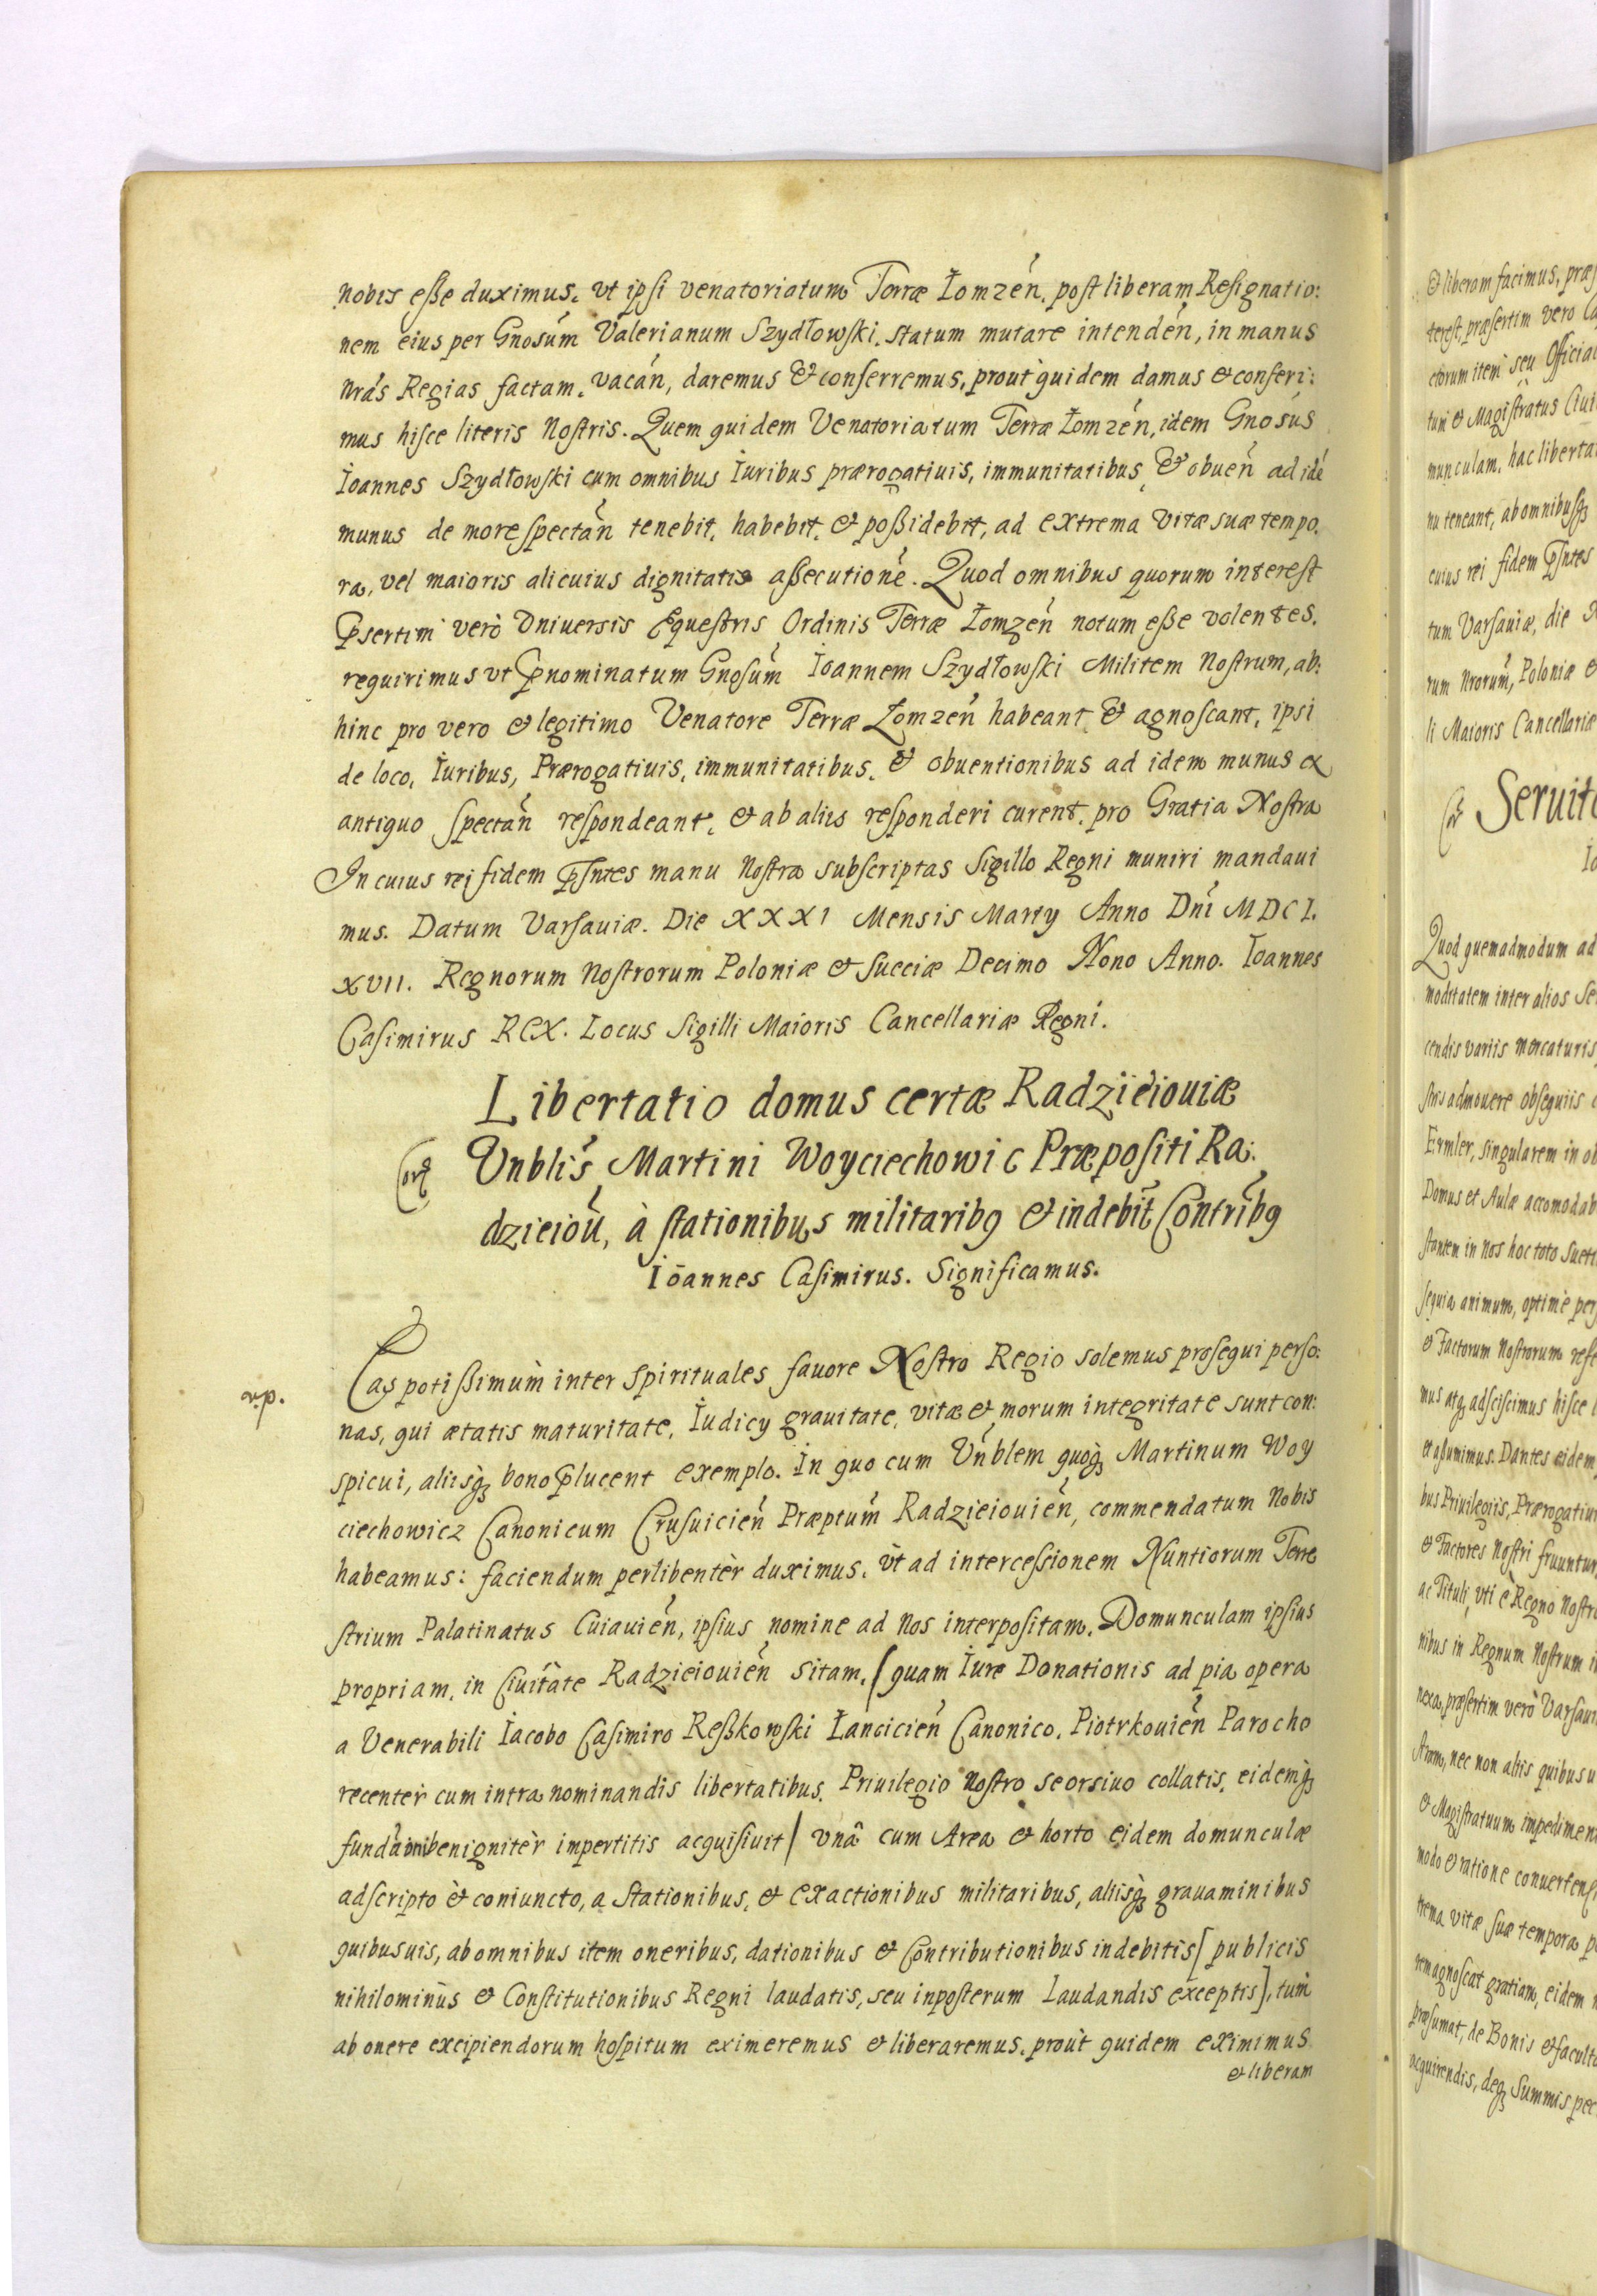 nobis eße duximus. vt ipsi venatoriatum Terræ Łomzeń. post liberam Resignatio:
nem eius per Gnosúm Valerianum Szydłowski. statum mutare intendeń, in manus
nrás Regias factam. vacań, daremus & conferremus, proùt quidem damus & conferi:
mus hisce literis Nostris. Quem quidem Venatoriatum Terræ Łomzeń, idem Gnosús
Ioannes Szydłowski cum omnibus Iuribus prærogatiuis, immunitatibus, & obueń ad idé
munus de more spectań tenebit, habebit, & poßidebit, ad extrema vitæ suæ tempo.
ra, vel maioris alicuius dignitatis aßecutioné. Quod omnibus quorum interest
Psertim verò Vniuersis Equestris Ordinis Terræ Łomzeń notum eße volentes.
requirimus vt Pnominatum Gnosúm Ioannem Szydłowski Militem Nostrum, ab:
hinc pro vero & legitimo Venatore Terræ Łomzeń habeant & agnoscant, ipsi
de loco, Iuribus, Prærogatiuis, immunitatibus, & obuentionibus ad idem munus ex
antiquo spectań respondeant, & ab aliis responderi curent. pro Gratia Nostra
In cuius rei fidem Psntes manu Nostra subscriptas Sigillo Regni muniri mandaui
mus. Datum Varsauiæ. Die XXXI Mensis Marty Anno Dni MDCL
XVII. Regnorum Nostrorum Poloniæ & Sueciæ Decimo Nono Anno. Ioannes
Casimirus REX. Locus Sigilli Maioris Cancellariæ Regni.
Libertatio domus certæ Radzieiouiæ
Vnblis Martini Woyciechowic Præpositi Ra:
dzieioú, à stationibus militaribq & indebit Contribq
Ioannes Casimirus. Significamus.
Eas potißimùm inter spirituales fauore Nostro Regio solemus prosequi perso:
nas, qui ætatis maturitate, Iudicy grauitate, vitæ & morum integritate sunt con:
spicui, aliisq bono Plucent exemplo. In quo cum Vnblem quoq Martinum Woy
ciechowicz Canonicum Crusuicień Præptum Radzieiouień, commendatum Nobis
habeamus: faciendum perlibentèr duximus. vt ad intercessionem Nuntiorum Terre
strium Palatinatus Cuiauień, ipsius nomine ad Nos interpositam. Domunculam ipsius
propriam, in Ciuitate Radzieiouień sitam, / quam Iure Donationis ad pia opera
a Venerabili Iacobo Casimiro Reßkowski Łancicień Canonico. Piotrkouień Parocho
recentèr cum intra nominandis libertatibus. Priuilegio Nostro seorsiuo collatis, eidemq
benignitèr impertitis acquisiuit / vnâ cum Area & horto eidem domunculæ
adscripto & coniuncto, a Stationibus, & exactionibus militaribus, aliisq grauaminibus
quibusuis, ab omnibus item oneribus, dationibus & Contributionibus indebitis [publicis
nihilominùs & Constitutionibus Regni laudatis, seu inposterum Laudandis exceptis], tùm
ab onere excipiendorum hospitum eximeremus & liberaremus. proùt quidem eximimus
& liberam
& liberam facimus, præs
terest, præsertim vero Ca
ctorum item seu Officia
tum & Magistratus Ciui
munculam, hac liberta
nu teneant, ab omnibusq
cuius rei fidem Psntes
tum Varsauiæ, die
rum Nrorum, Poloniæ &
li Maioris Cancellariæ
Seruito
Io
Quod quemadmodum ad
moditatem inter alios Se
cendis variis mercaturis
stris admouere obsequiis
Ermler, singularem in ob
Domus et Aulæ accomodab
stantem in Nos hoc toto Sueti
sequia animum, optimè per
& Factorum Nostrorum refe
mus atq adsciscimus hisce
et aßumimus. Dantes eidem
bus Priuilegiis, Prærogatiu
& Factores Nostri fruuntur
ac Tituli, vti è Regno Nostro
nibus in Regnum Nostrum i
nexa, præsertim verò Varsaui
Atom, nec non aliis quibusu
& Magistratuum impedimen
modo & ratione conuertens
trema vitæ suæ tempora p
remagnoscat gratiam, eidem
præsumat, de Bonis & faculta
acquirendis, deq Summis pec